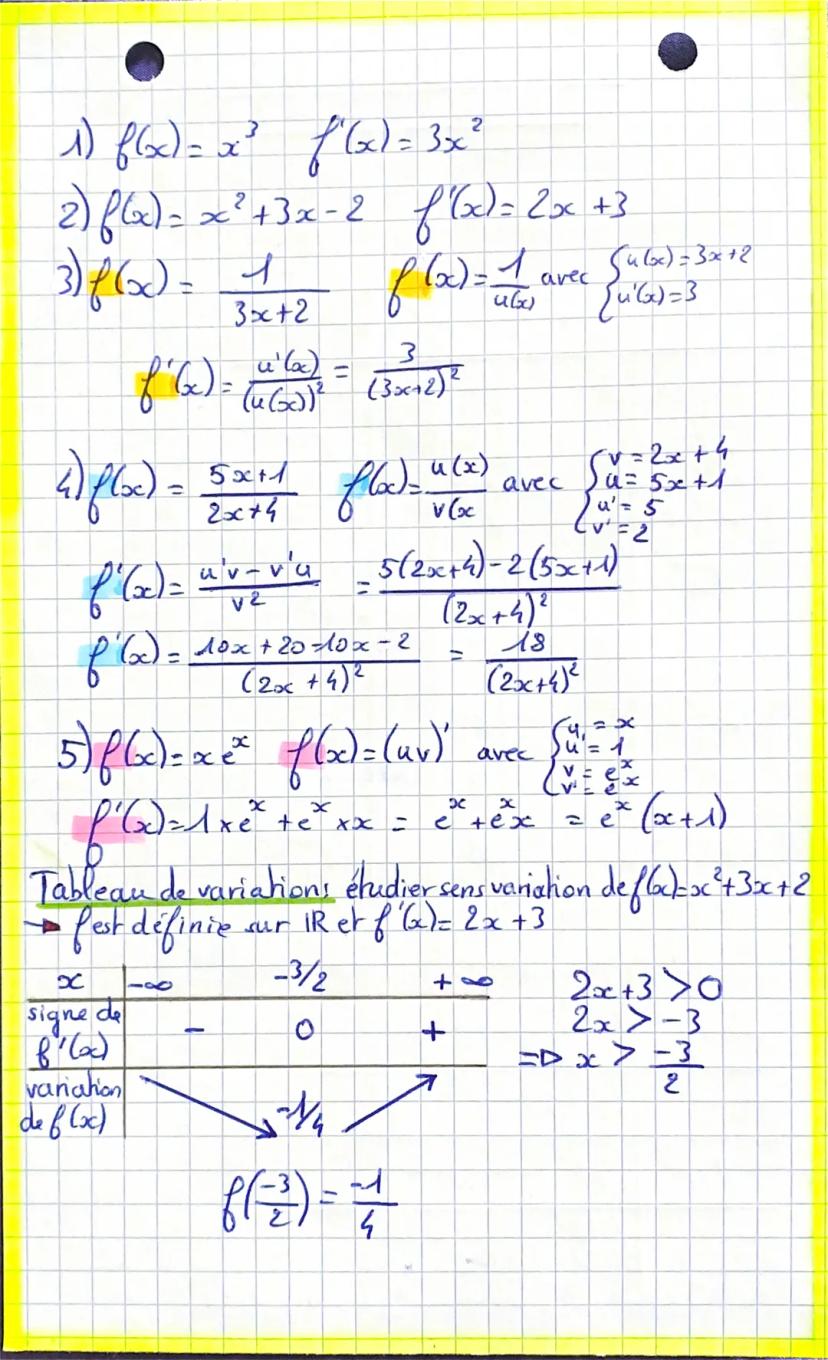 1) f(x) = x³ f'(x) = 3x²
2) f(x) = x² + 3x - 2 f'(x) = 2x + 3
3) f(x) = 1/(3x+2) f(x) = 1/u(x) avec { u(x) = 3x+2 u'(x) = 3
f'(x) = u'(x)/(u(x))² = 3/(3x+2)²
4) f(x) = (5x+1)/(2x+4) f(x) = u(x)/v(x avec { v = 2x+4 u = 5x+1 u' = 5 v' = 2
f'(x) = (u'v - v'u)/v² = (5(2x+4) - 2(5x+1))/(2x+4)²
f'(x) = (10x + 20 - 10x - 2)/(2x+4)² = 18/(2x+4)²
5) f(x) = x eˣ f(x) = (uv)' avec { u = x u' = 1 v = eˣ v' = eˣ
f'(x) = 1 × eˣ + eˣ × x = eˣ + eˣx = eˣ (x+1)
Tableau de variations étudier sens variation de f(x) = x² + 3x + 2
→ f est définie sur IR et f'(x) = 2x + 3
x -∞ -3/2 +∞
signe de f'(x) - 0 +
variation de f(x) -1/4
2x+3 > 0
2x > -3
⇒ x > -3/2
f(-3/2) = -1/4